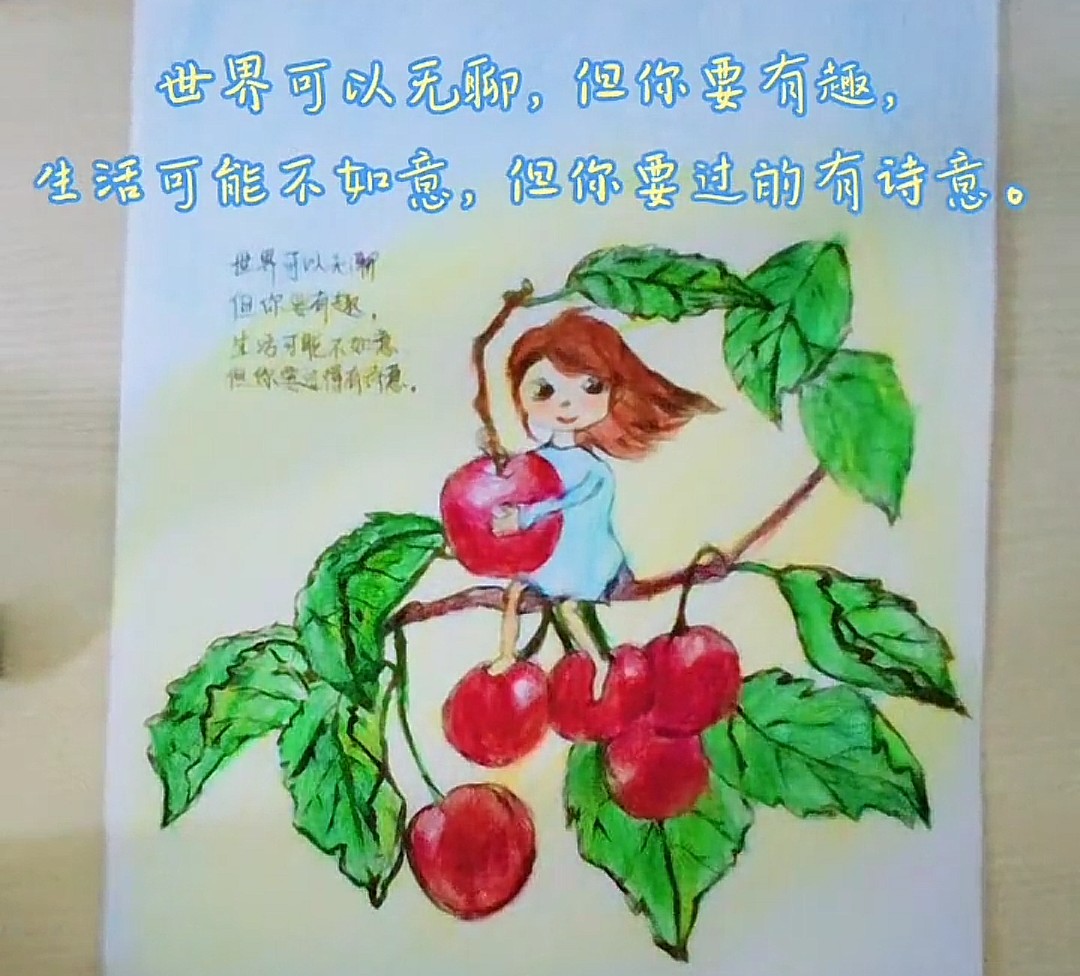 世界可以无聊，但你要有趣，
生活可能不如意，但你要过的有诗意。
世界可以无聊
但你要有趣，
生活可能不如意
但你要过得有诗意。